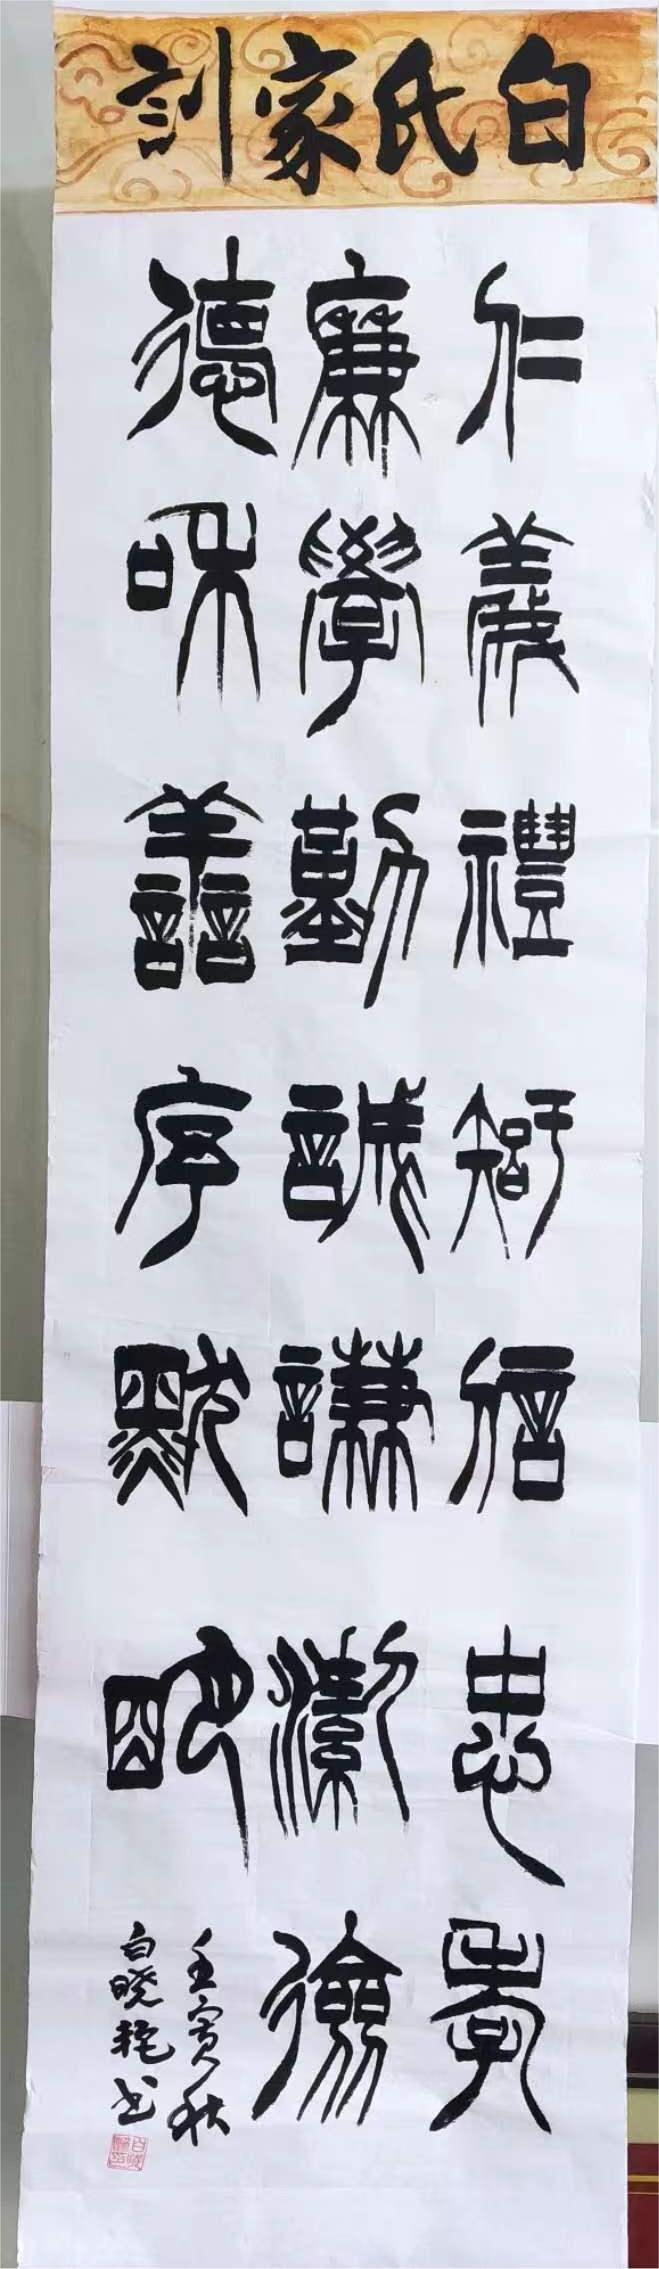 白氏家訓
仁義禮智信忠孝
廉學勤誠謙潔儉
德和善序默明
壬寅秋
白晓艳书